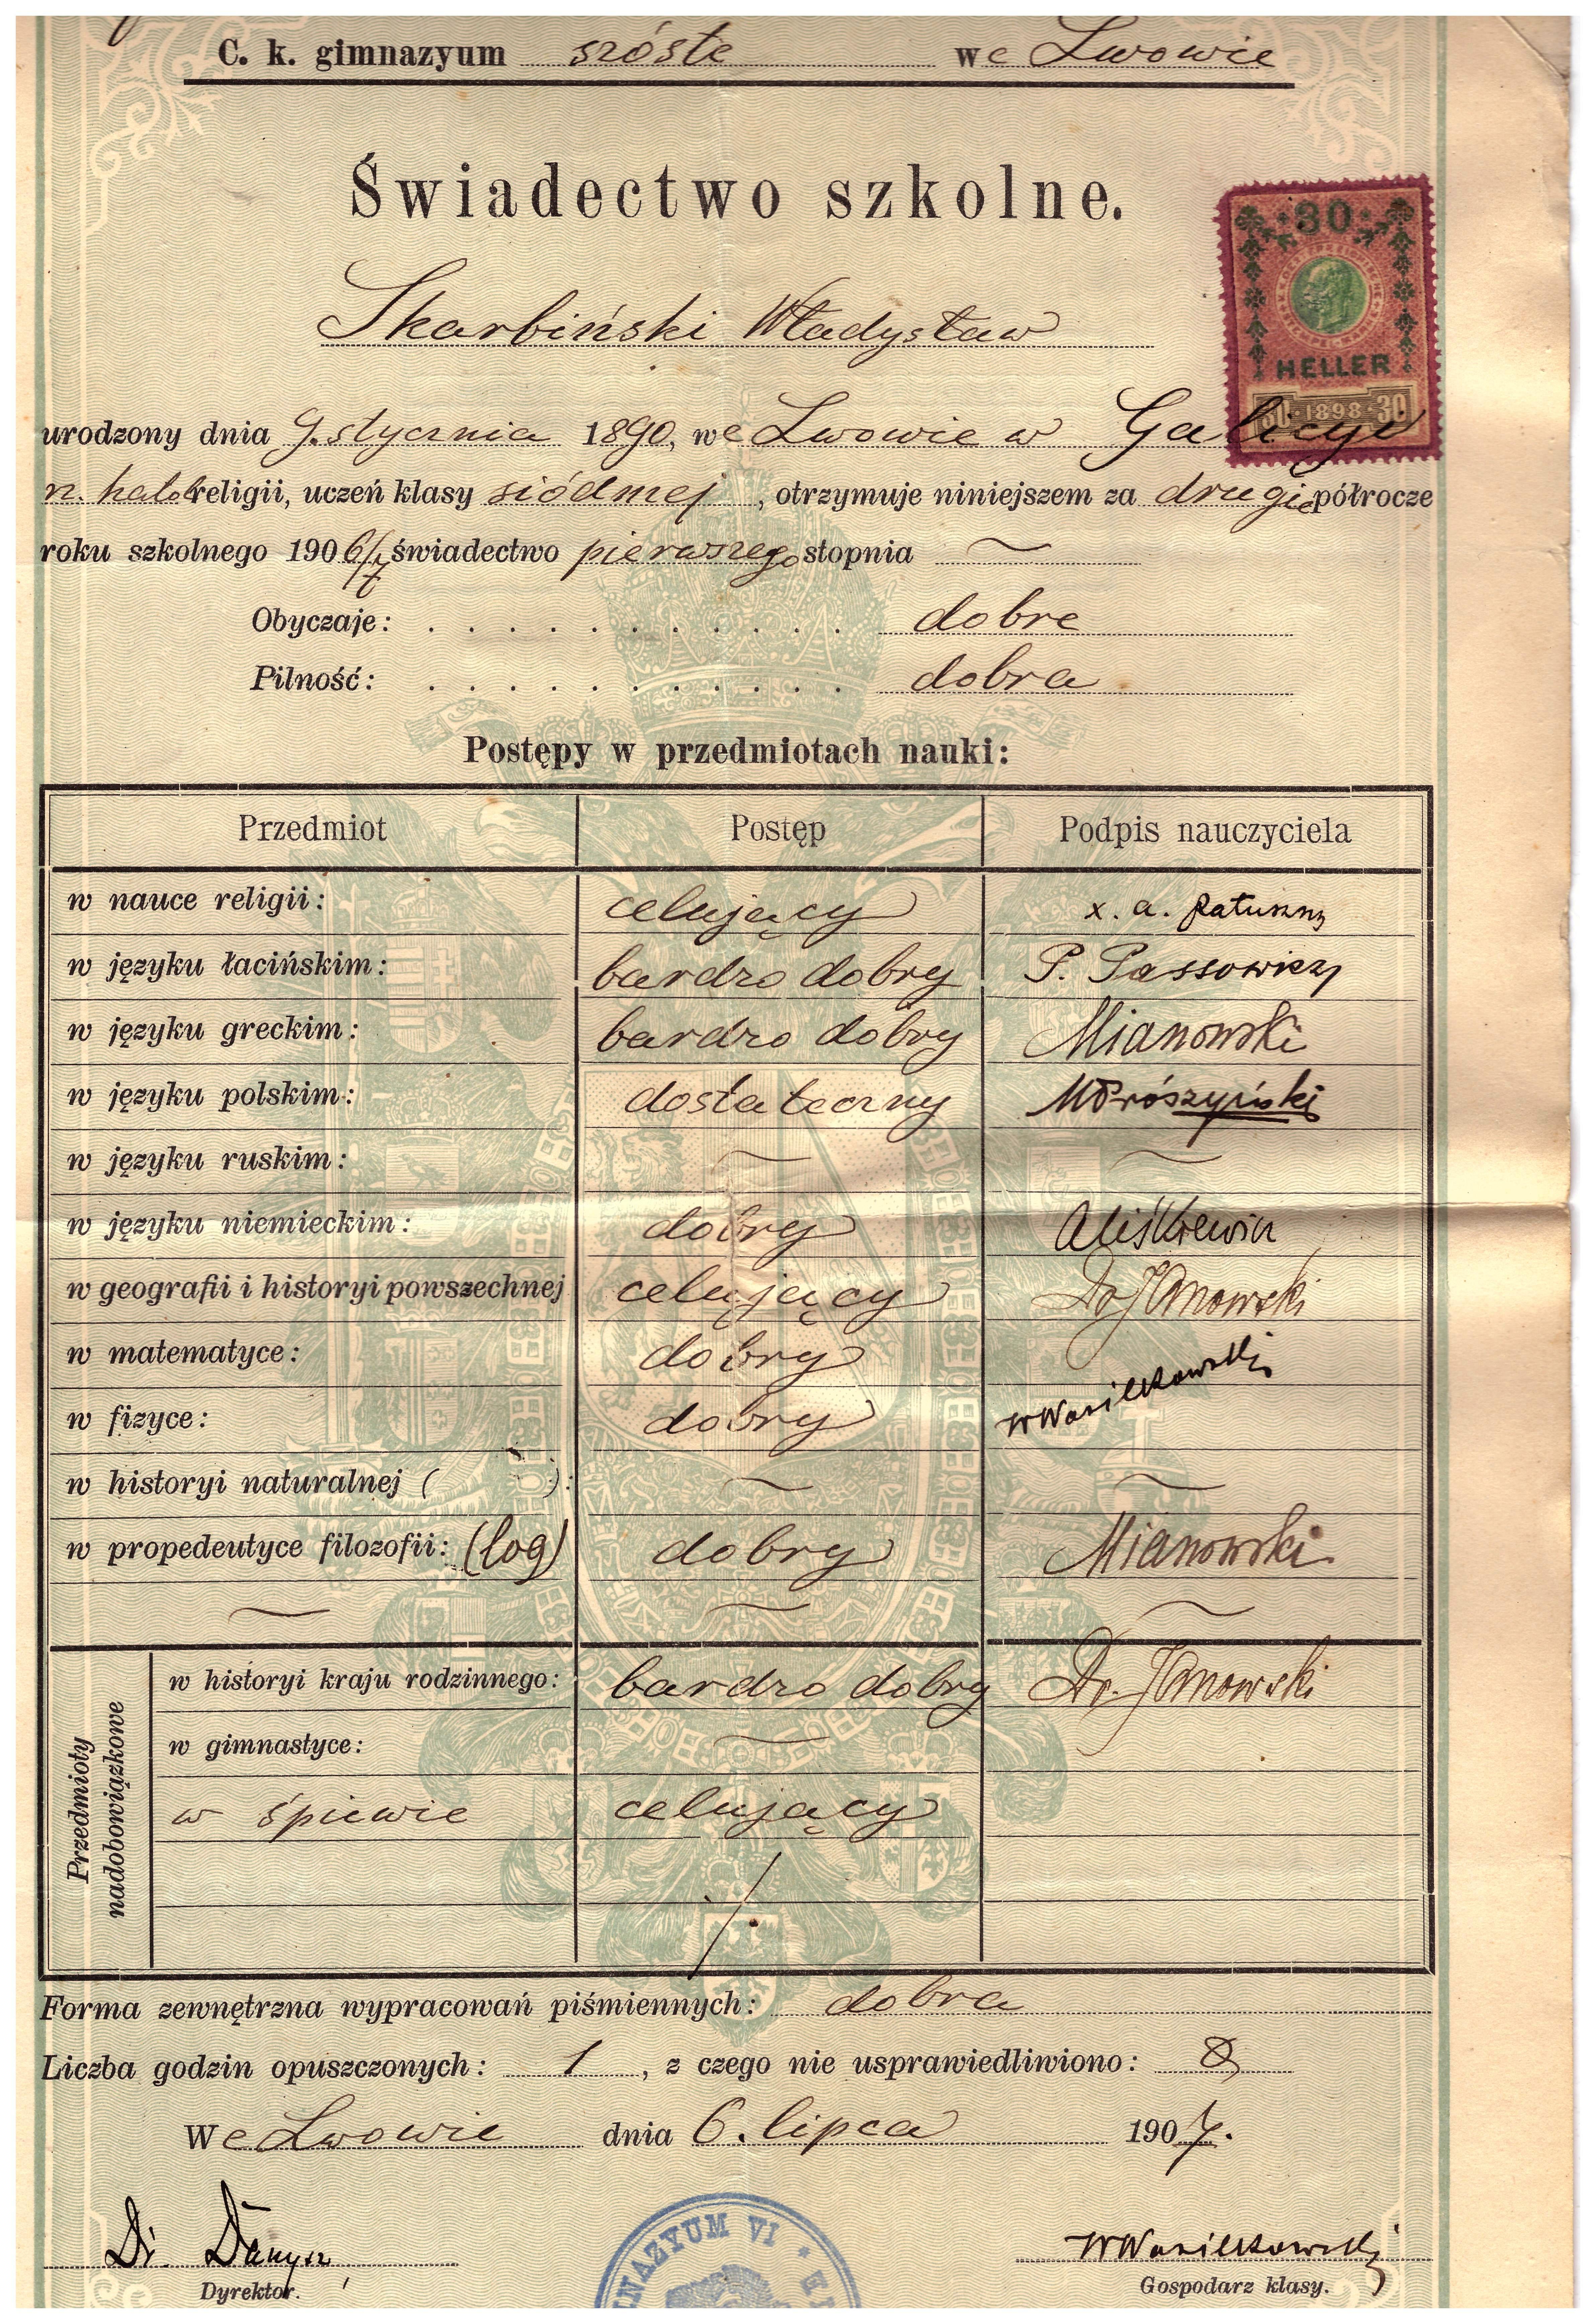 C. k. gimnazyum szóste we Lwowie
Świadectwo szkolne.
30
HELLER
30 · 1898 · 30
Skarbiński Władysław
urodzony dnia 9. stycznia 1890, we Lwowie w Galicyi
rz. katol. religii, uczeń klasy siódmej, otrzymuje niniejszem za drugie półrocze
roku szkolnego 1906/7 świadectwo pierwszego stopnia
Obyczaje: dobre
Pilność: dobra
Postępy w przedmiotach nauki:
Przedmiot Postęp Podpis nauczyciela
w nauce religii: celujący x. a.
w języku łacińskim: bardzo dobry P. Passowicz
w języku greckim: bardzo dobry Mianowski
w języku polskim: dostateczny
w języku ruskim: —
w języku niemieckim: dobry
w geografii i historyi powszechnej celujący Dr Janowski
w matematyce: dobry
w fizyce: dobry W Wasilkowski
w historyi naturalnej ( ): —
w propedeutyce filozofii: (log) dobry Mianowski
Przedmioty nadobowiązkowe
w historyi kraju rodzinnego: bardzo dobry Dr. Janowski
w gimnastyce: —
w śpiewie celujący
Forma zewnętrzna wypracowań piśmiennych: dobra
Liczba godzin opuszczonych: 1, z czego nie usprawiedliwiono: 0
We Lwowie dnia 6. lipca 1907.
Dr. Danysz W Wasilkowski
Dyrektor. Gospodarz klasy.
GIMNAZYUM VI